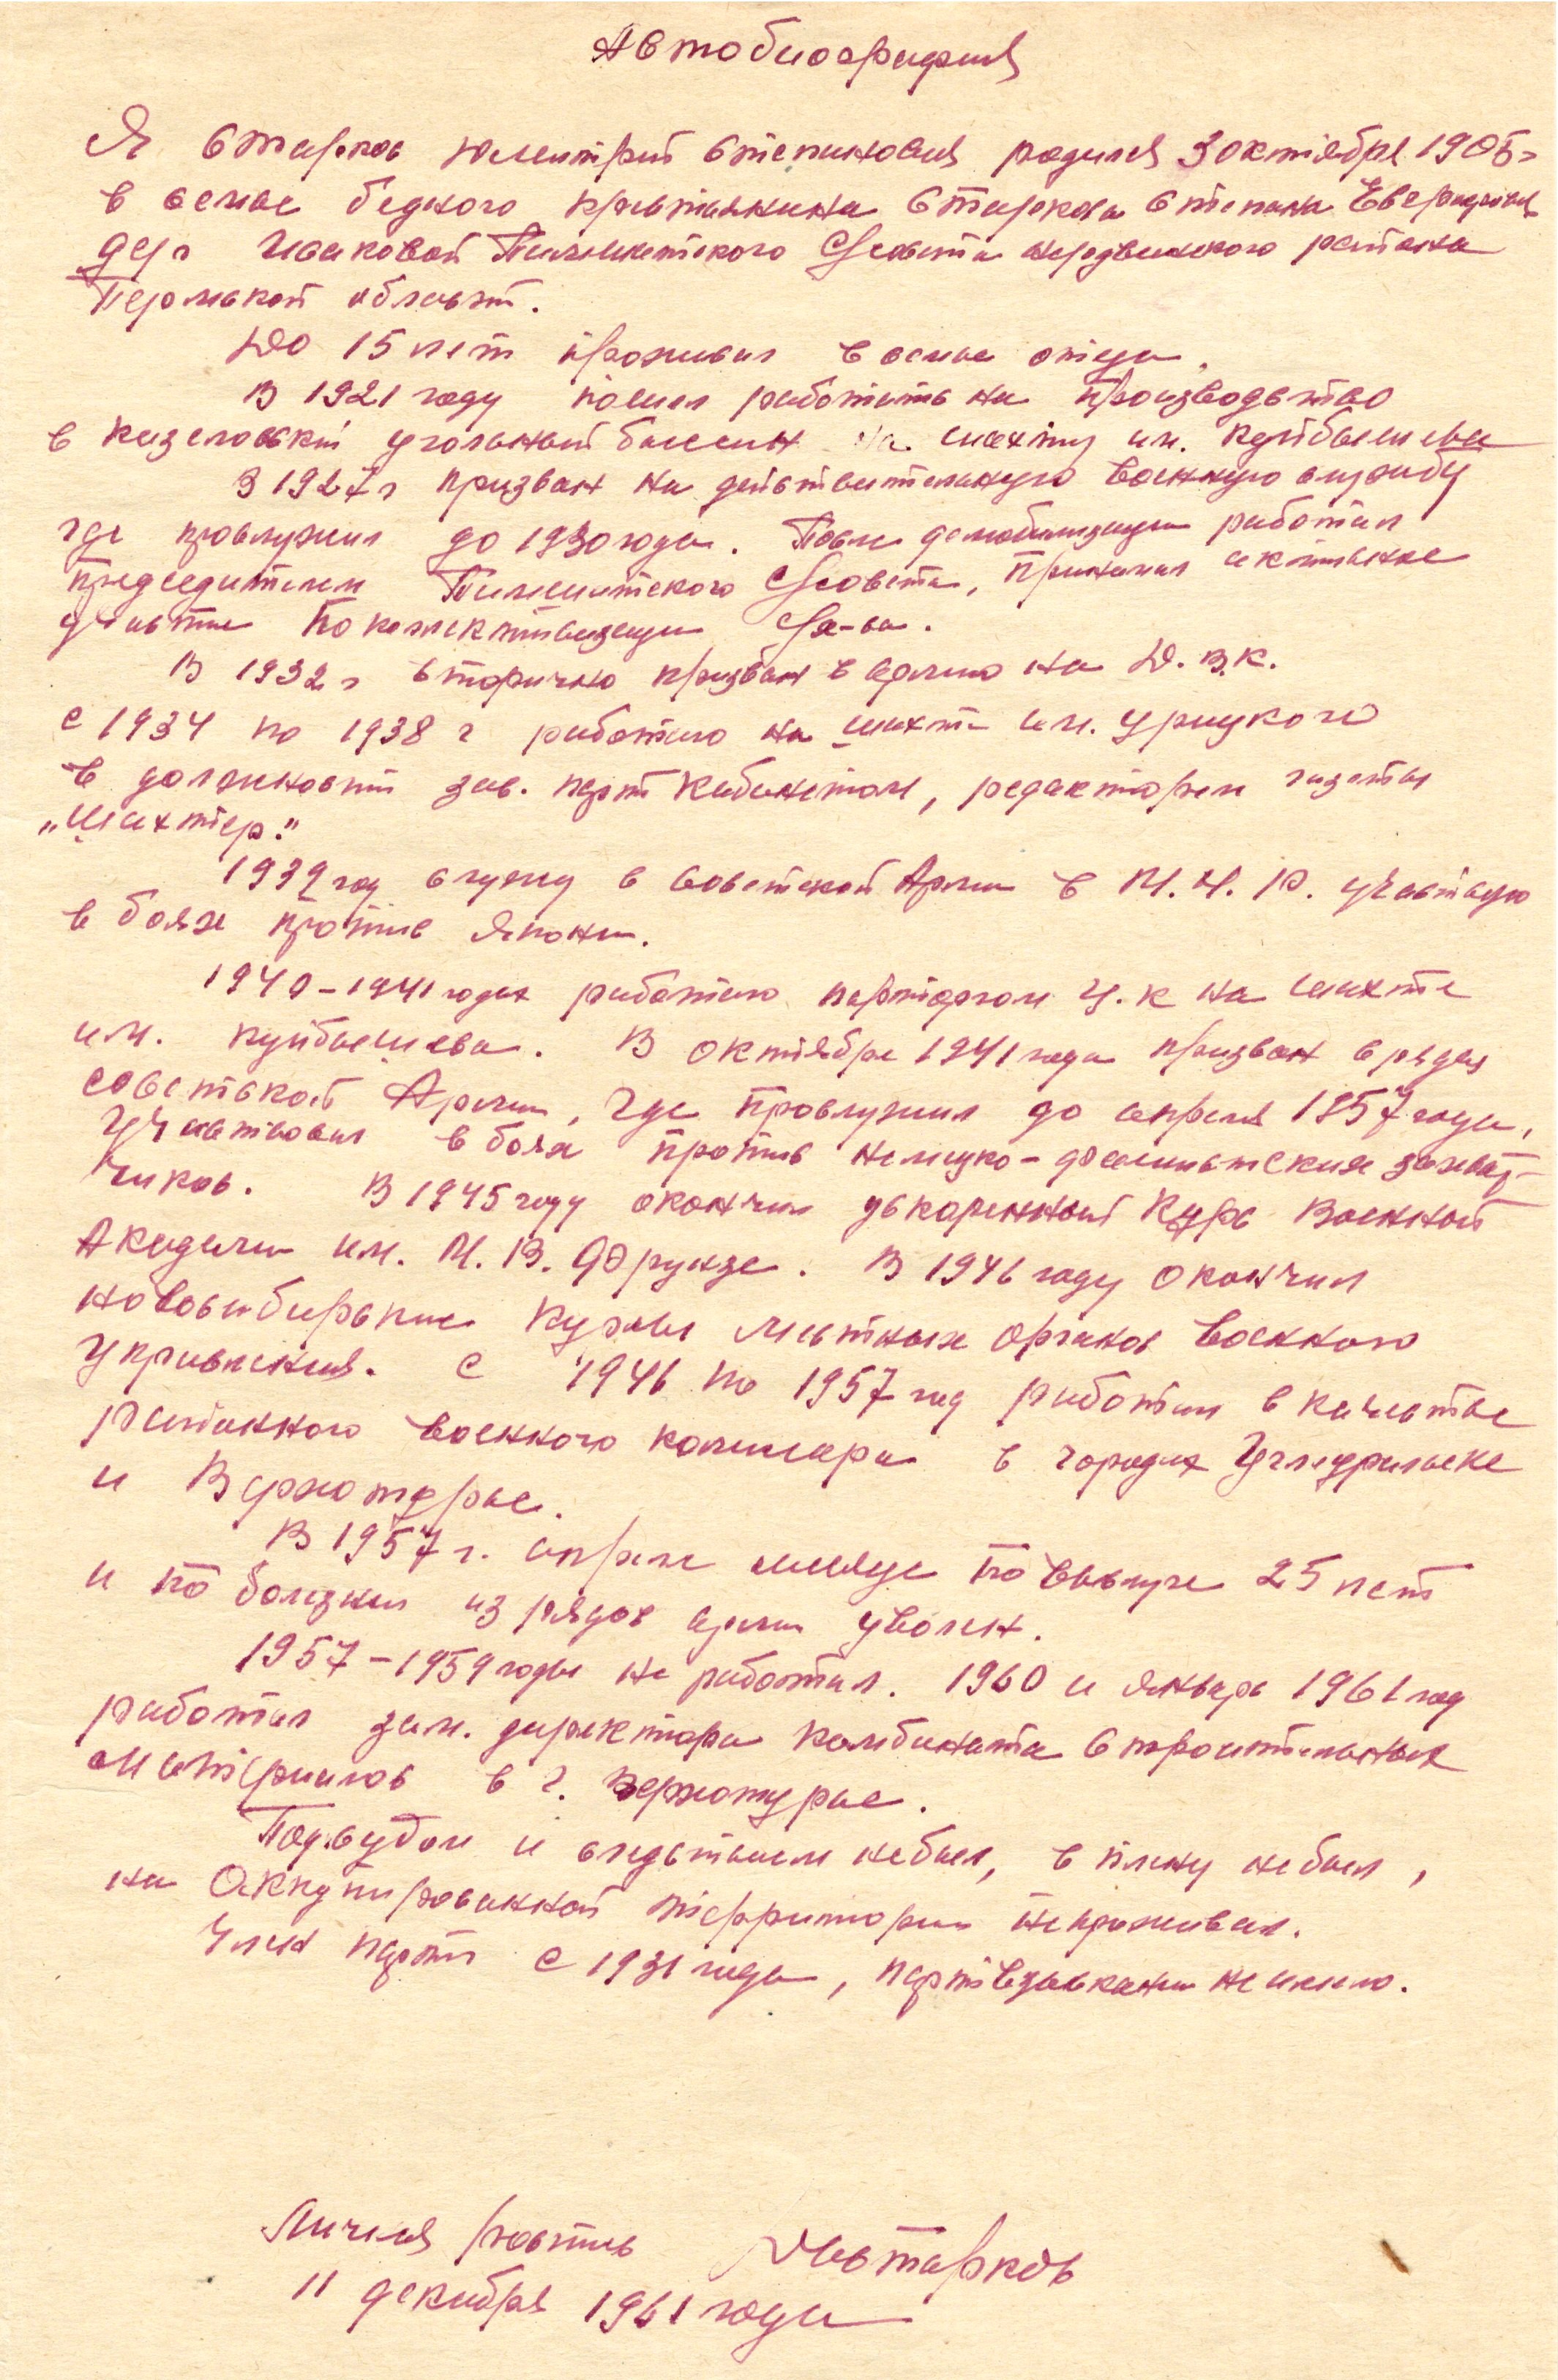 Автобиография
Я Старков Дмитрий Степанович родился 3 октября 1905 г
в семье бедного крестьянина Старкова Степана
дер Исаковой Сч совета Нердвинского района
Пермской област.
До 15 лет проживал в семье отца.
В 1921 году пошел работать на производство
в Кизеловский угольный бассейн на шахту им. Куйбышева
В 1927 г призван на действительную военную службу
где прослужил до 1930 года. После демобилизации работал
председателем совета, принимал активное
участие по коллективизации с/х-ва.
В 1932 г вторично призван в армию на Д.В.К.
с 1934 по 1938 г работаю на шахте им. Урицкого
в должности зав. парт кабинетом, редактором газеты
„Шахтер."
1939 год служу в Советской Армии в М.Н.Р. участвую
в боях против Японии.
1940-1941 годах работаю парторгом Ц.К на шахте
им. Куйбышева. В октябре 1941 года призван в ряды
советской Армии, где прослужил до апреля 1957 года,
Участвовал в боях против немецко-фашистских захват-
чиков. В 1945 году окончил ускоренный курс Военной
Академии им. М.В. Фрунзе. В 1946 году окончил
новосибирские курсы местных органов военного
управления. С 1946 по 1957 год работал в качестве
районного военного комиссара в городах Углеуральске
и Верхотурье.
В 1957 г. апреле месяце по выслуге 25 лет
и по болезни из рядов армии уволен.
1957-1959 годы не работал. 1960 и январь 1961 год
работал зам. директора комбината строительных
материалов в г. Верхотурье.
Под судом и следствием не был, в плену не был,
на оккупированной территории не проживал.
Член парти с 1931 года, партвзыскании не имею.
Личная роспись ДСтарков
11 декабря 1961 года